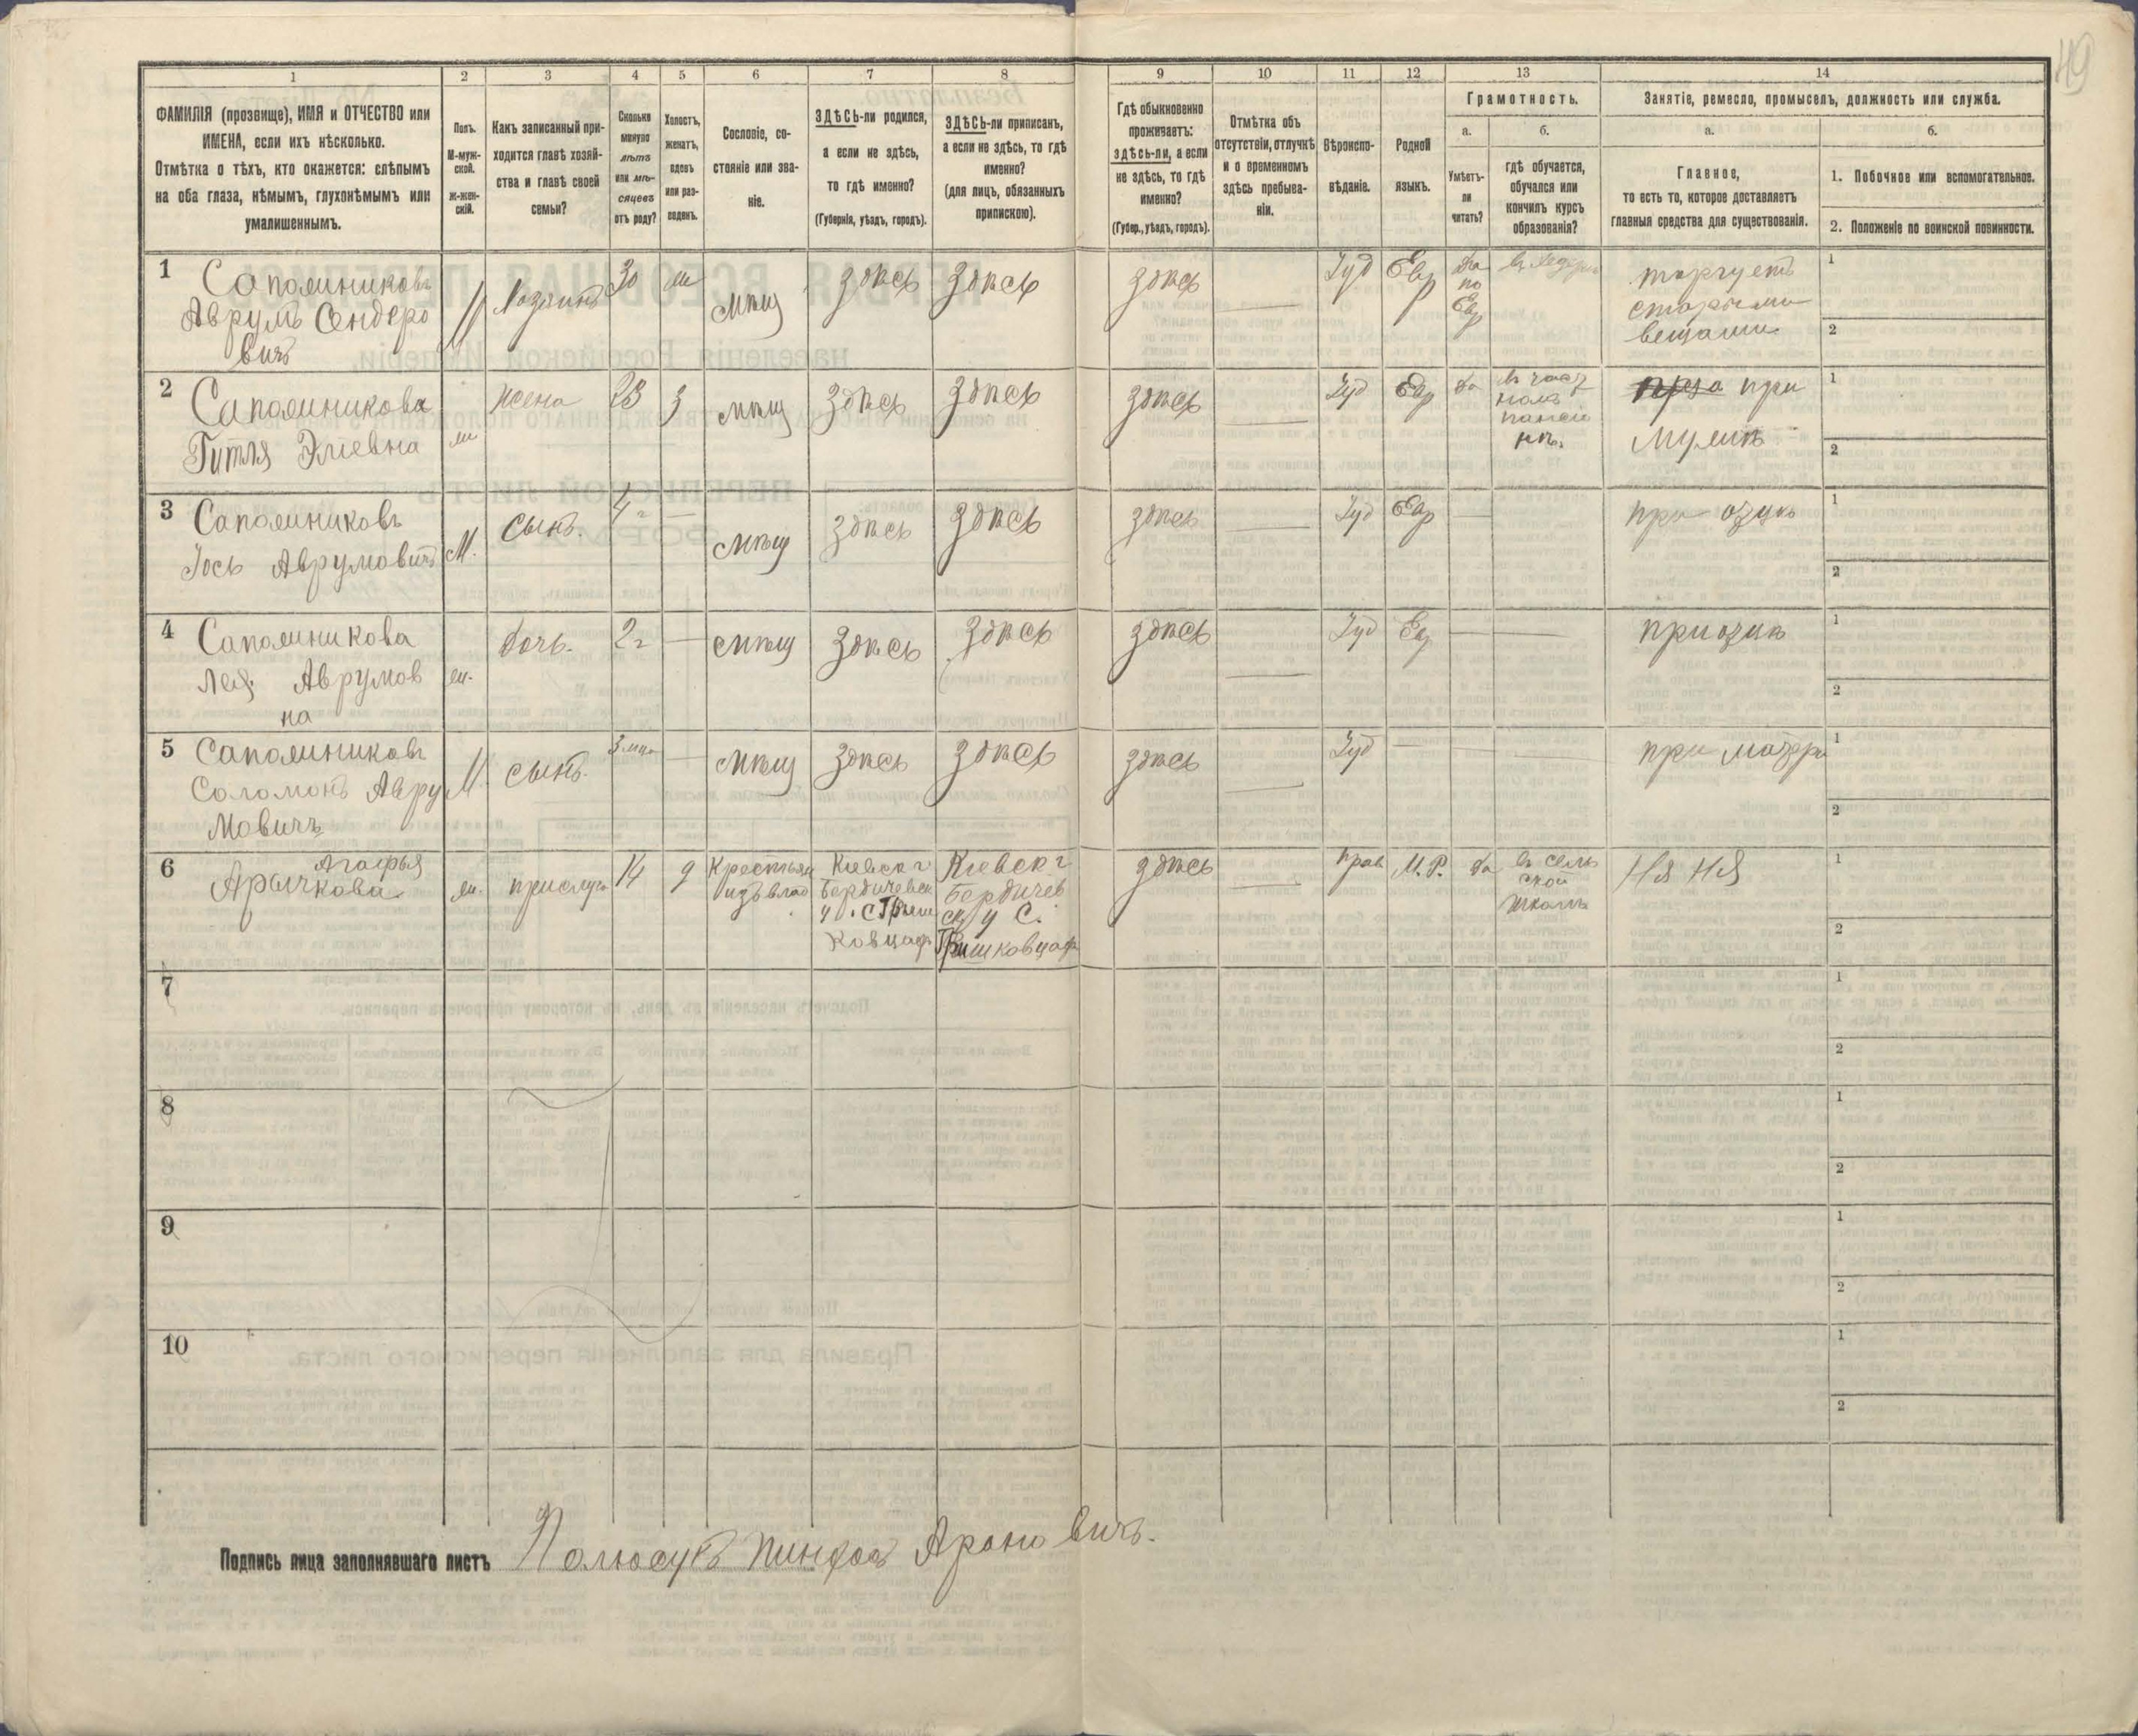 49
1 2 3 4 5 6 7 8 9 10 11 12 13 14
ФАМИЛІЯ (прозвище), ИМЯ и ОТЧЕСТВО или
ИМЕНА, если ихъ нѣсколько.
Отмѣтка о тѣхъ, кто окажется: слѣпымъ
на оба глаза, нѣмымъ, глухонѣмымъ или
умалишеннымъ.
Полъ.
М-муж-
ской.
Ж-жен-
скій.
Какъ записанный при-
ходится главѣ хозяй-
ства и главѣ своей
семьи?
Сколько
минуло
лѣтъ
или мѣ-
сяцевъ
отъ роду?
Холостъ,
женатъ,
вдовъ
или раз-
веденъ.
Сословіе, со-
стояніе или зва-
ніе.
ЗДѢСЬ-ли родился,
а если не здѣсь,
то гдѣ именно?
(Губернія, уѣздъ, городъ).
ЗДѢСЬ-ли приписанъ,
а если не здѣсь, то гдѣ
именно?
(для лицъ, обязанныхъ
припискою).
Гдѣ обыкновенно
проживаетъ:
здѣсь-ли, а если
не здѣсь, то гдѣ
именно?
(Губер., уѣздъ, городъ).
Отмѣтка объ
отсутствіи, отлучкѣ
и о временномъ
здѣсь пребыва-
ніи.
Вѣроиспо-
вѣданіе.
Родной
языкъ.
Грамотность.
а.
Умѣетъ-
ли
читать?
б.
гдѣ обучается,
обучался или
кончилъ курсъ
образованія?
Занятіе, ремесло, промыселъ, должность или служба.
а.
Главное,
то есть то, которое доставляетъ
главныя средства для существованія.
б.
1. Побочное или вспомогательное.
2. Положеніе по воинской повинности.
1
Сапожниковъ
Аврумъ Сендеро
вичъ
М
Хозяинъ
30
ж
мѣщ
здѣсь
здѣсь
здѣсь
Іуд
Евр
да
по
Евр
торгуетъ
старыми
вещами
1
2
2
Сапожникова
Гитля Элевна
ж
жена
23
з
мѣщ
здѣсь
здѣсь
здѣсь
Іуд
Евр
да
въ част
номъ
пансіо
нѣ.
при
мужѣ
1
2
3
Сапожниковъ
Іось Аврумовичъ
М.
сынъ.
4 г
мѣщ
здѣсь
здѣсь
здѣсь
Іуд
Евр
при отцѣ
1
2
4
Сапожникова
Лея Аврумов
на
ж.
дочь.
2 г
мѣщ
здѣсь
здѣсь
здѣсь
Іуд
Евр
при отцѣ
1
2
5
Сапожниковъ
Соломонъ Авру
мовичъ
М.
сынъ.
3 мца
мѣщ
здѣсь
здѣсь
здѣсь
Іуд
при матери
1
2
6
Агафья
Арычкова
ж.
прислуга
14
д
Крестьян
изъ влад
Кіевск г
Бердичевск
у. с Гриш
ковцах
Кіевск г
Бердичев
ск у с.
Гришковцах
здѣсь
прав
М. Р.
да
въ сель
ской
школѣ
Ня Ня
1
2
7
1
2
8
1
2
9
1
2
10
1
2
Подпись лица заполнявшаго листъ Пинхос Ароновичъ.